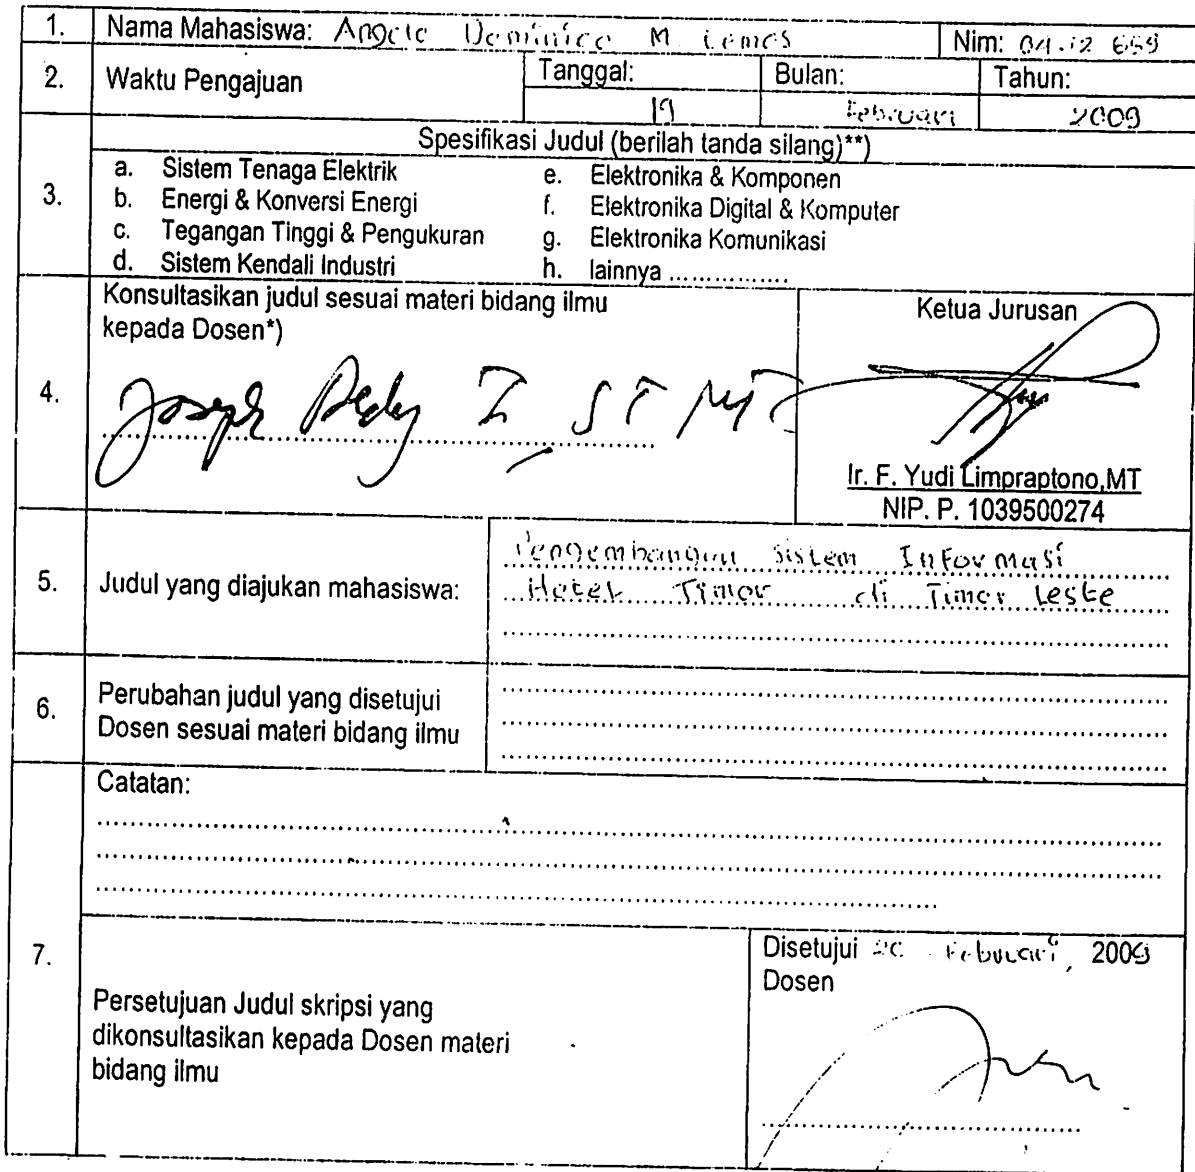 1. Nama Mahasiswa: Angelo Dominico M Lemos Nim: 04.12 659
2. Waktu Pengajuan Tanggal: Bulan: Tahun:
19 Februari 2009
3. Spesifikasi Judul (berilah tanda silang)**)
a. Sistem Tenaga Elektrik e. Elektronika & Komponen
b. Energi & Konversi Energi f. Elektronika Digital & Komputer
c. Tegangan Tinggi & Pengukuran g. Elektronika Komunikasi
d. Sistem Kendali Industri h. lainnya ...............
4. Konsultasikan judul sesuai materi bidang ilmu
kepada Dosen*)
Joseph Dedy I, ST MT
Ketua Jurusan
Ir. F. Yudi Limpraptono,MT
NIP. P. 1039500274
5. Judul yang diajukan mahasiswa:
Pengembangan Sistem Informasi
Hotel Timor di Timor Leste
6. Perubahan judul yang disetujui
Dosen sesuai materi bidang ilmu
7. Catatan:
Persetujuan Judul skripsi yang
dikonsultasikan kepada Dosen materi
bidang ilmu
Disetujui 20 Februari, 2009
Dosen